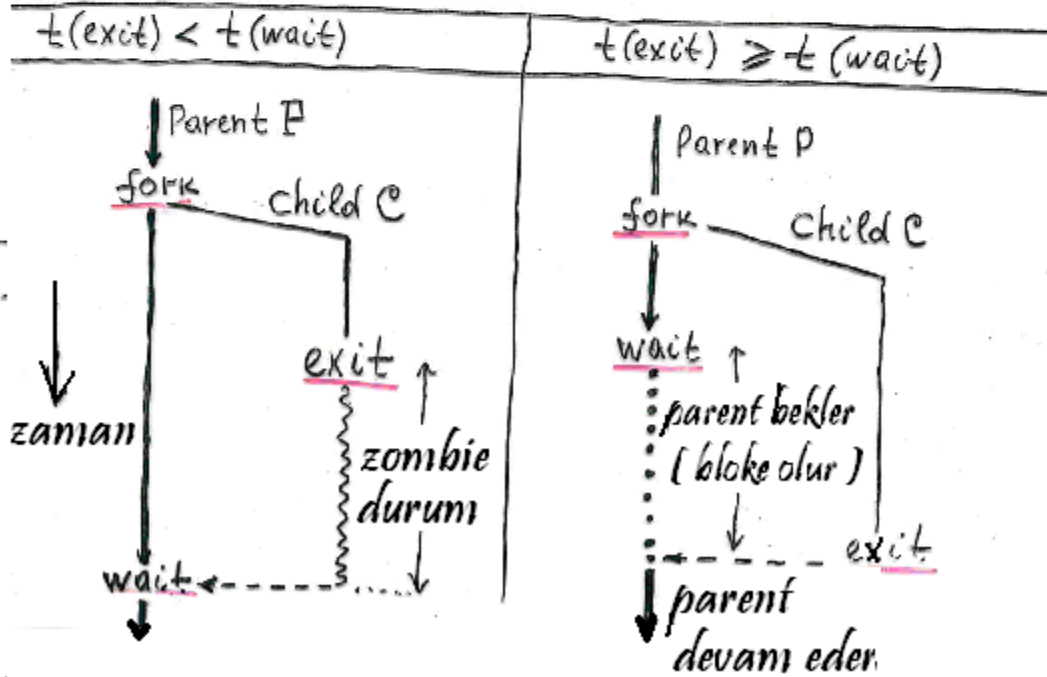 t(exit) < t(wait)
Parent P
fork
Child C
zaman
exit
zombie
durum
wait
t(exit) ⩾ t(wait)
Parent P
fork
Child C
wait
parent bekler
(bloke olur)
exit
parent
devam eder.